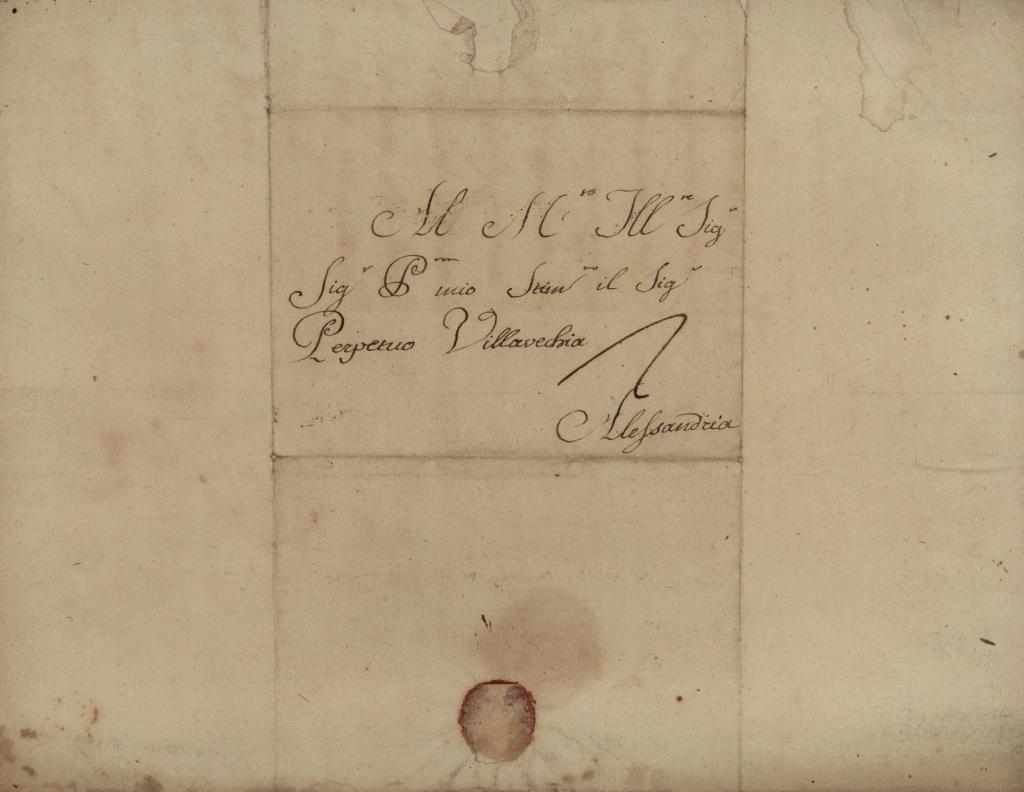 Al M.ro Ill.re Sig.r
Sig.r P.ron mio Stim.mo il Sig.r
Perpetuo Villavechia
Alessandria